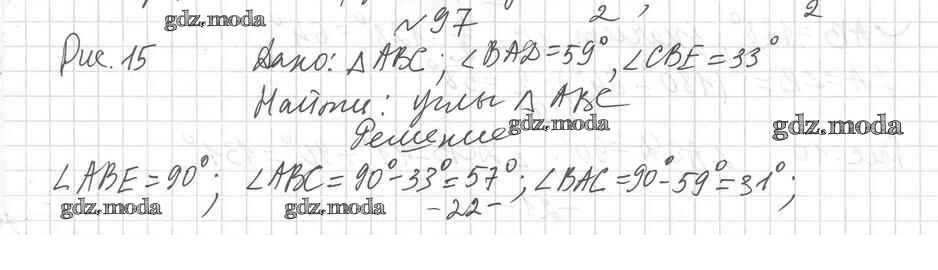 №97
2 , 2
gdz.moda
Рис. 15 Дано: △ABC; ∠BAD=59°, ∠CBE=33°
Найти: углы △ ABC
Решение
gdz.moda gdz.moda
∠ABE=90°; ∠ABC=90°-33°=57°; ∠BAC=90°-59°=31°;
gdz.moda gdz.moda
-22-